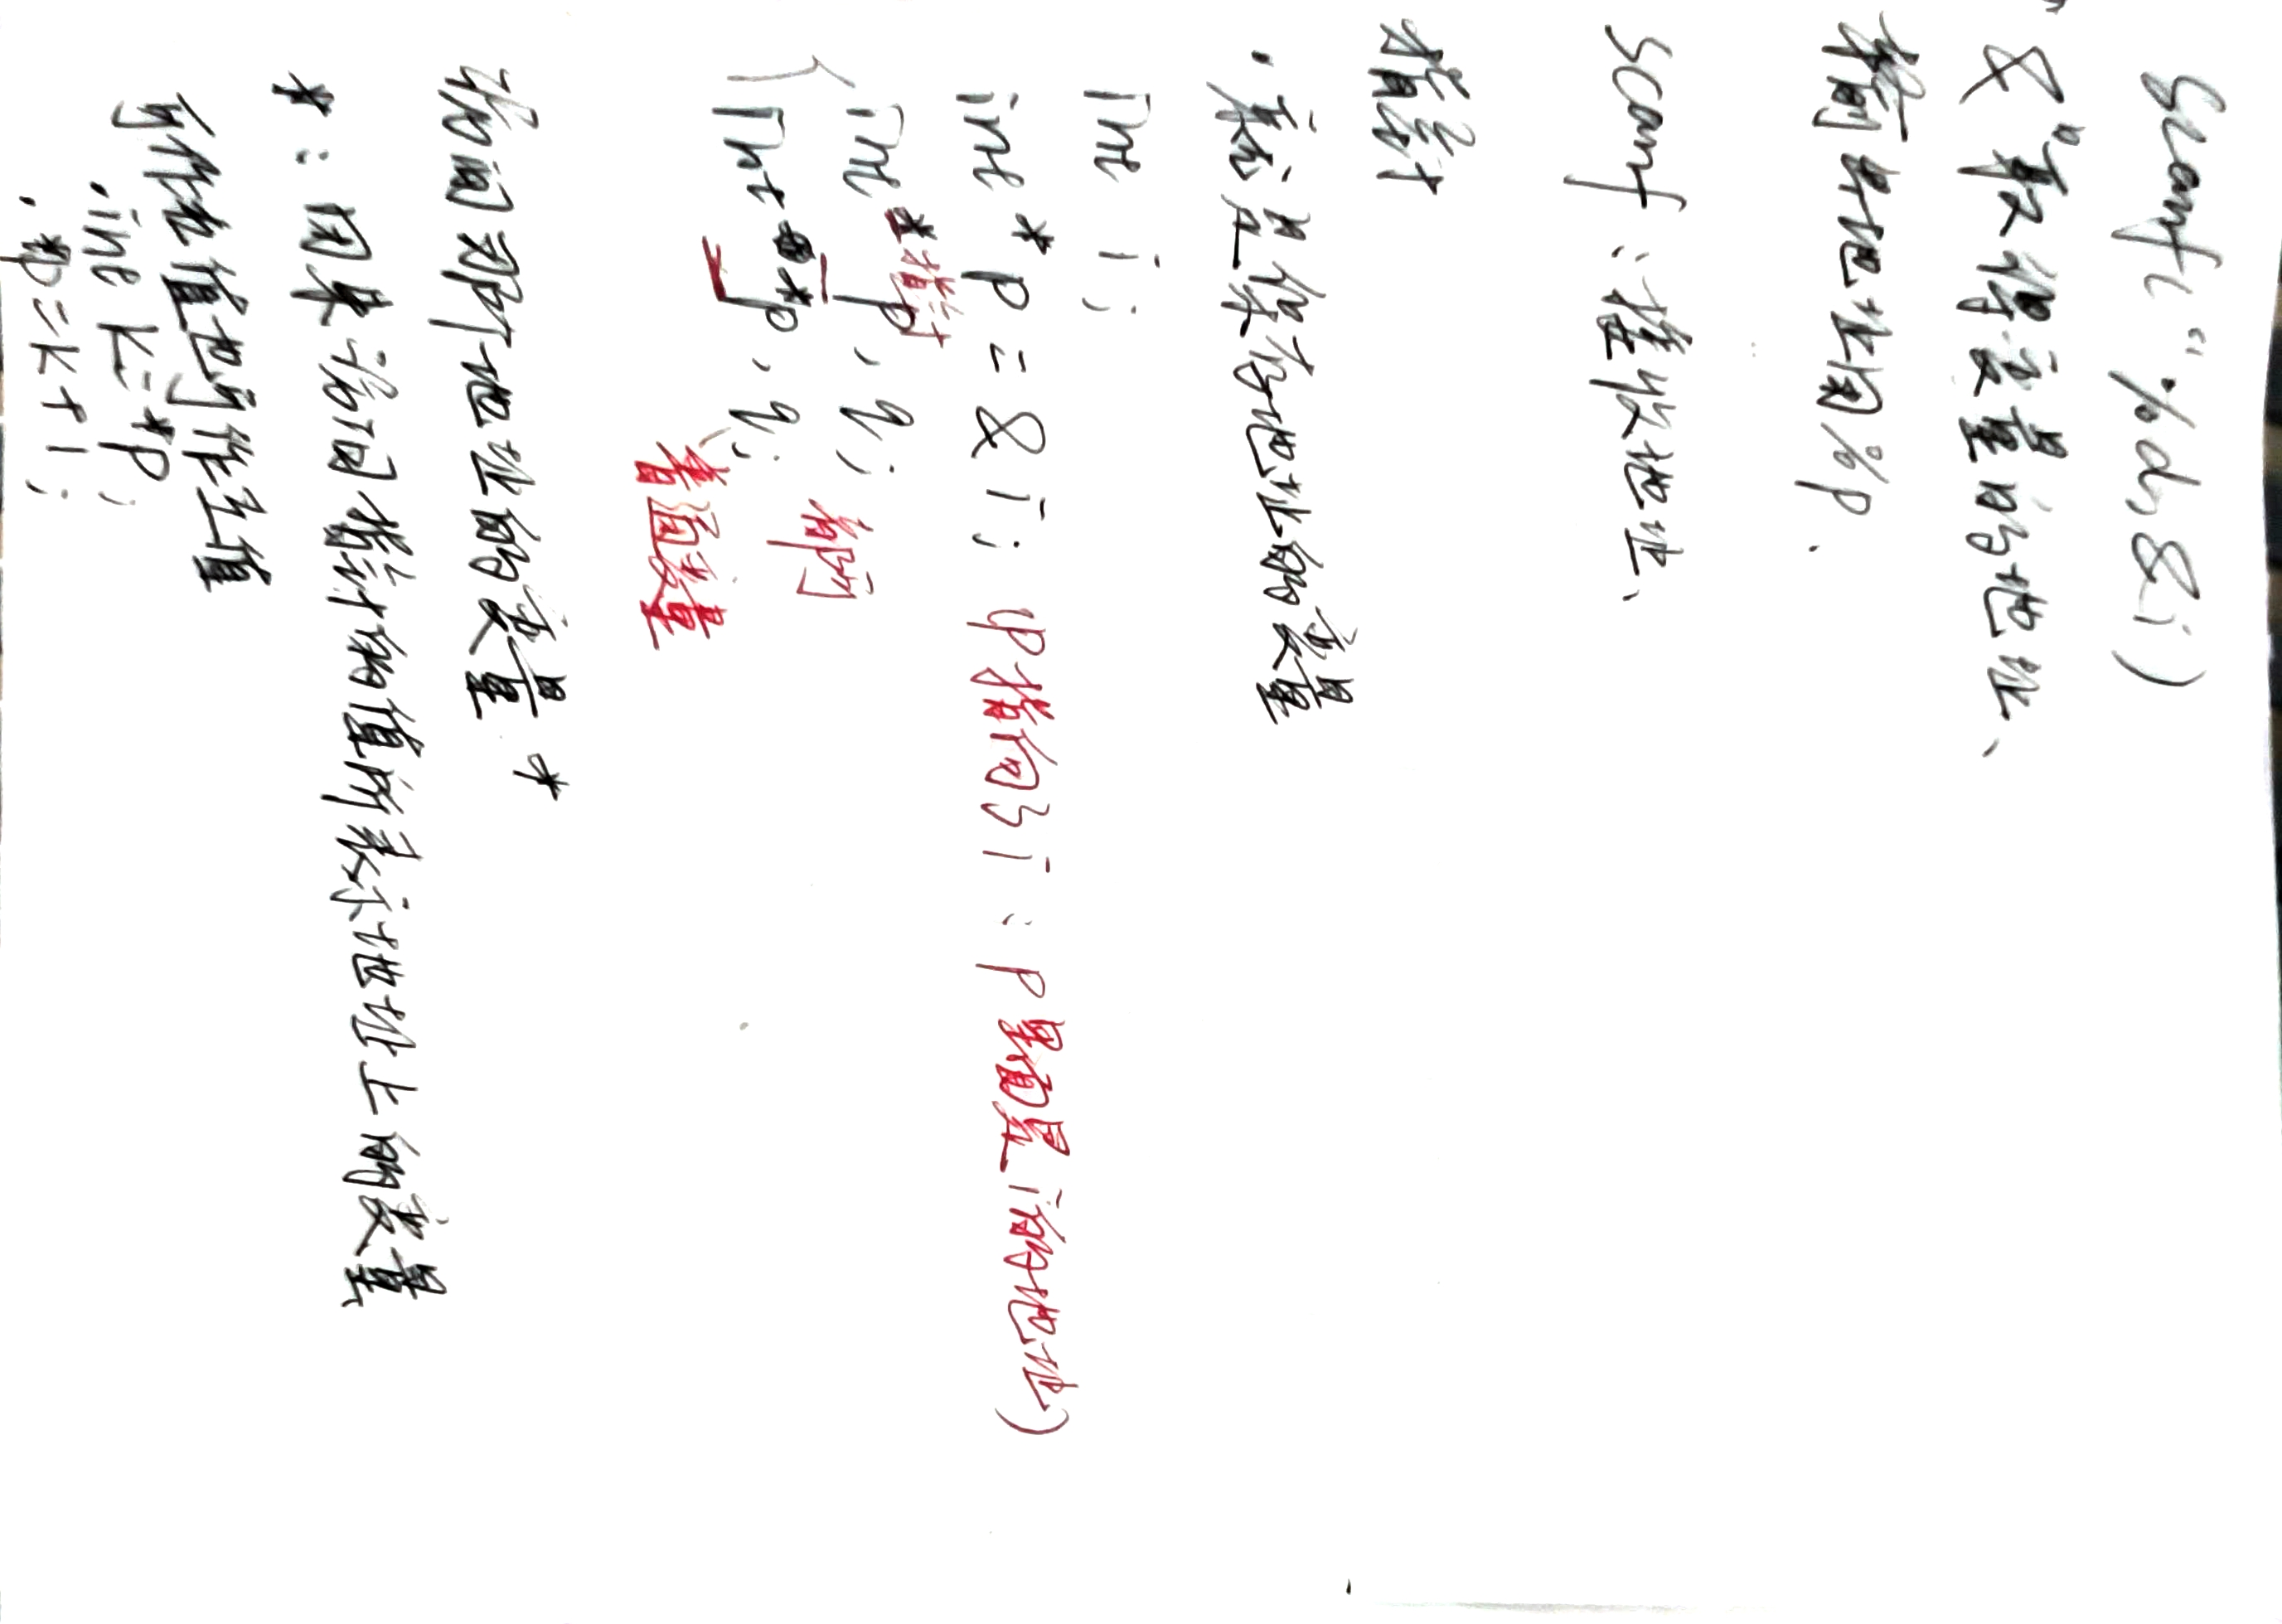 scanf("%d", &i)
& "取得变量的地址、
输出地址用%p.
scanf:接收地址、
指针
·就是保存地址的变量
int i;
int *p = &i; (p指向了i:p里面是i的地址)
int* p, q; 都 指针
int *p, q; 普通变量
访问那个地址的变量 *
*:用来访问指针的值所表示地址上的变量
可作右值也可作左值
·int k=*p;
·*p=k+1;